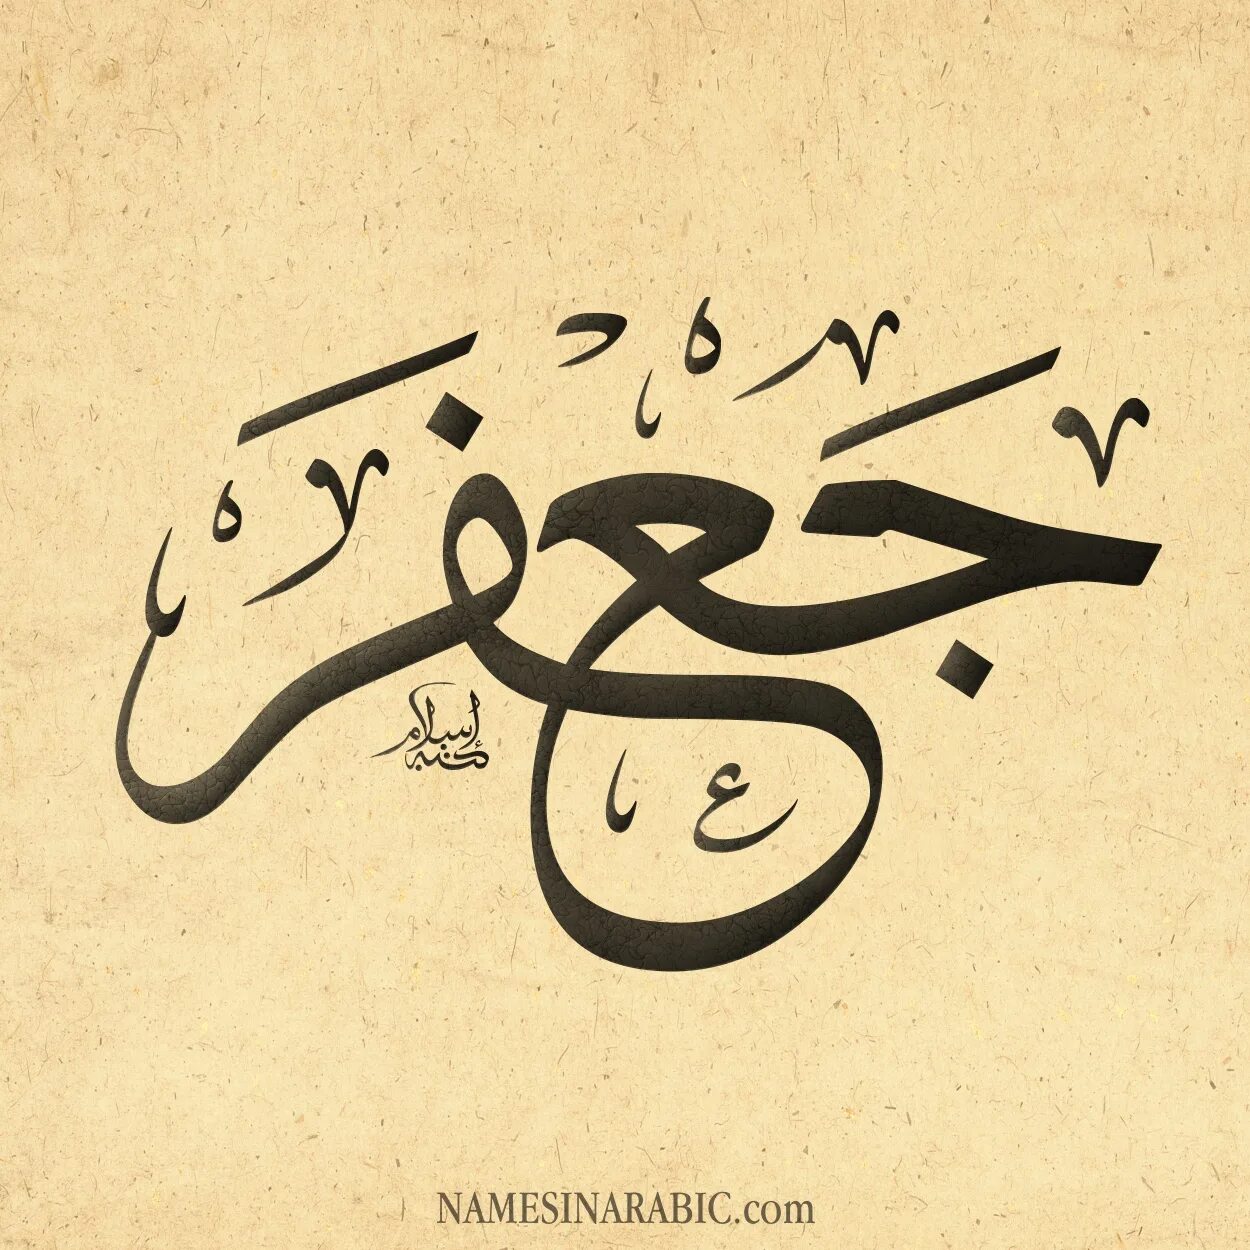 جَعْفَر
كتبه إسلام
NAMESINARABIC.com